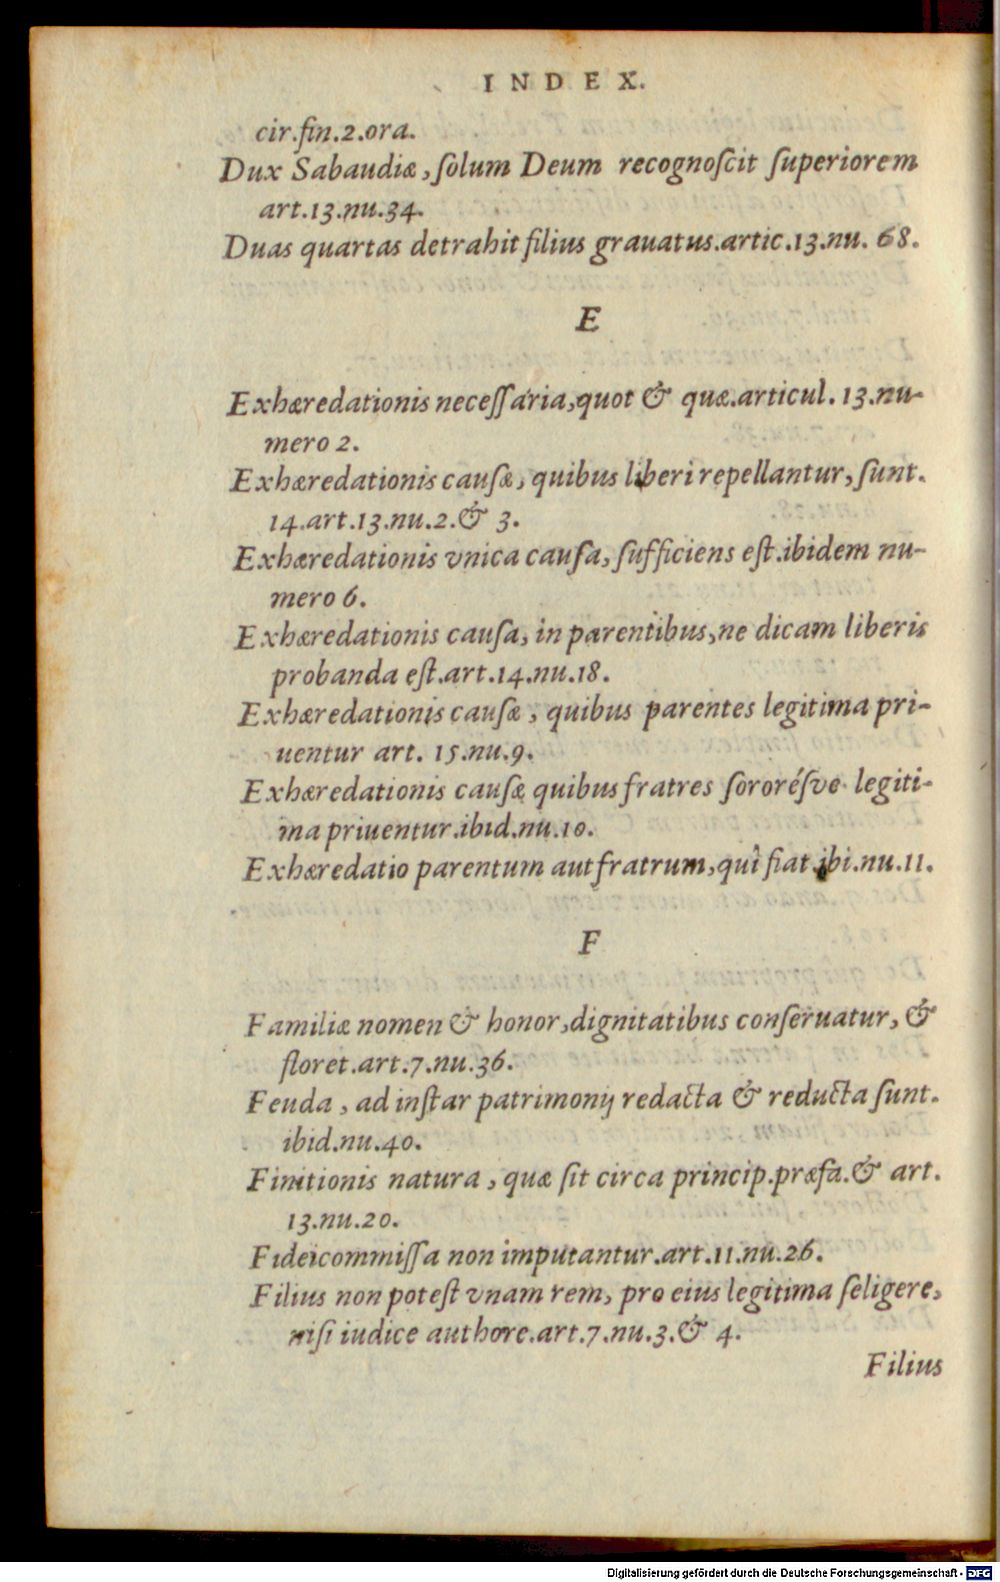 INDEX.
cir.fin.2.ora.
Dux Sabaudiæ, ſolum Deum recognoſcit ſuperiorem
art.13.nu.34.
Duas quartas detrahit filius grauatus.artic.13.nu. 68.
E
Exhæredationis neceſſaria,quot & quæ.articul. 13.nu-
mero 2.
Exhæredationis cauſæ, quibus liberi repellantur, ſunt.
14.art.13.nu.2.& 3.
Exhæredationis vnica cauſa, ſufficiens eſt.ibidem nu-
mero 6.
Exhæredationis cauſa, in parentibus,ne dicam liberis
probanda eſt.art.14.nu.18.
Exhæredationis cauſæ, quibus parentes legitima pri-
uentur art. 15.nu.9.
Exhæredationis cauſæ quibus fratres ſororéſve legiti-
ma priuentur.ibid.nu.10.
Exhæredatio parentum aut fratrum,quî fiat.ibi.nu.11.
F
Familiæ nomen & honor,dignitatibus conſeruatur, &
floret.art.7.nu.36.
Feuda, ad inſtar patrimonij redacta & reducta ſunt.
ibid.nu.40.
Finitionis natura, quæ ſit circa princip.præfa.& art.
13.nu.20.
Fideicommiſſa non imputantur.art.11.nu.26.
Filius non poteſt vnam rem, pro eius legitima ſeligere,
niſi iudice authore.art.7.nu.3.& 4.
Filius
Digitalisierung gefördert durch die Deutsche Forschungsgemeinschaft - DFG